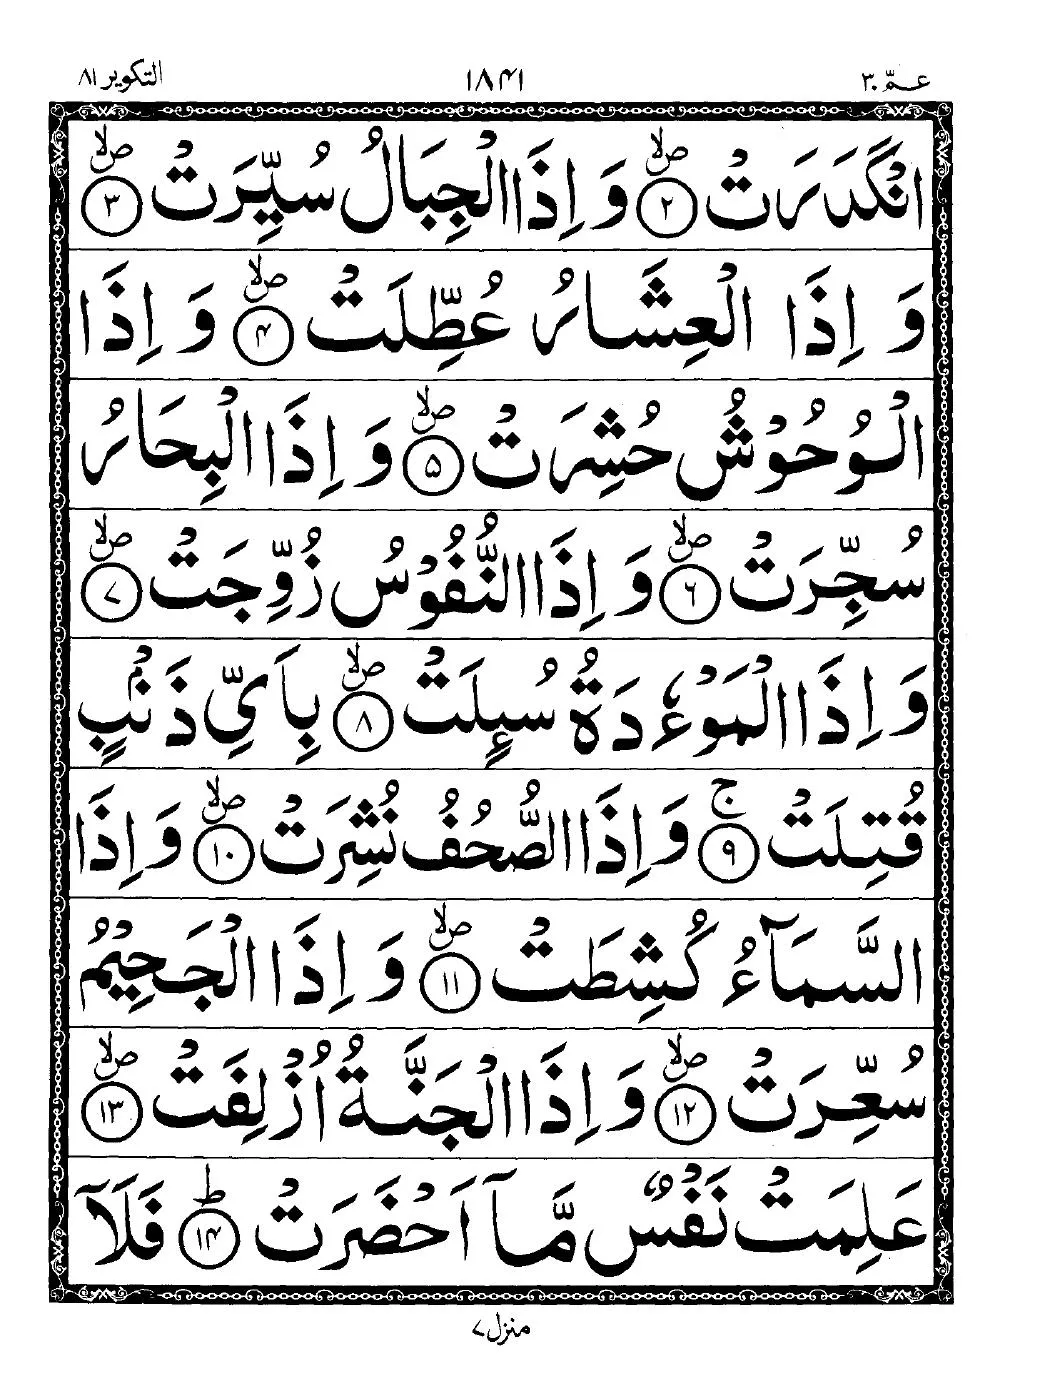 عـمّ ٣٠
١٨٤١
التكوير ٨١
انْكَدَرَتْ ۪ۙ ﴿٢﴾ وَ اِذَا الْجِبَالُ سُيِّرَتْ ۪ۙ ﴿٣﴾
وَ اِذَا الْعِشَارُ عُطِّلَتْ ۪ۙ ﴿٤﴾ وَ اِذَا
الْوُحُوْشُ حُشِرَتْ ۪ۙ ﴿٥﴾ وَ اِذَا الْبِحَارُ
سُجِّرَتْ ۪ۙ ﴿٦﴾ وَ اِذَا النُّفُوْسُ زُوِّجَتْ ۪ۙ ﴿٧﴾
وَ اِذَا الْمَوْءٗدَةُ سُىِٕلَتْ ۪ۙ ﴿٨﴾ بِاَيِّ ذَنْۢبٍ
قُتِلَتْ ۚ ﴿٩﴾ وَ اِذَا الصُّحُفُ نُشِرَتْ ۪ۙ ﴿١٠﴾ وَ اِذَا
السَّمَآءُ كُشِطَتْ ۪ۙ ﴿١١﴾ وَ اِذَا الْجَحِيْمُ
سُعِّرَتْ ۪ۙ ﴿١٢﴾ وَ اِذَا الْجَنَّةُ اُزْلِفَتْ ۪ۙ ﴿١٣﴾
عَلِمَتْ نَفْسٌ مَّاۤ اَحْضَرَتْ ؕ ﴿١٤﴾ فَلَاۤ
منزل ٧